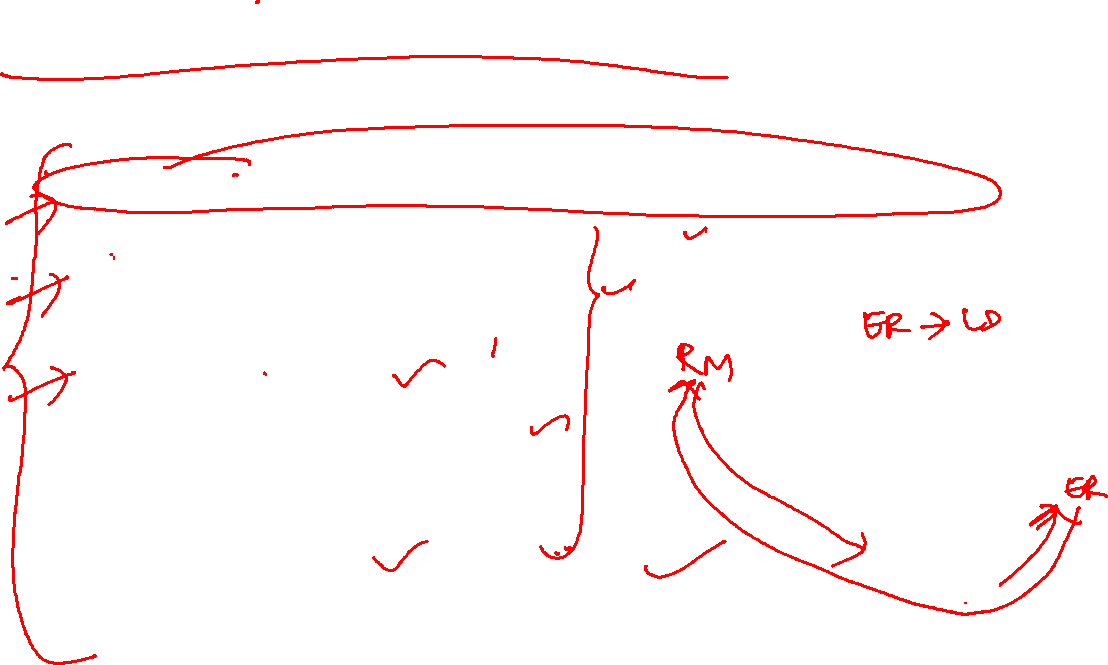 ER → LD
RM
ER